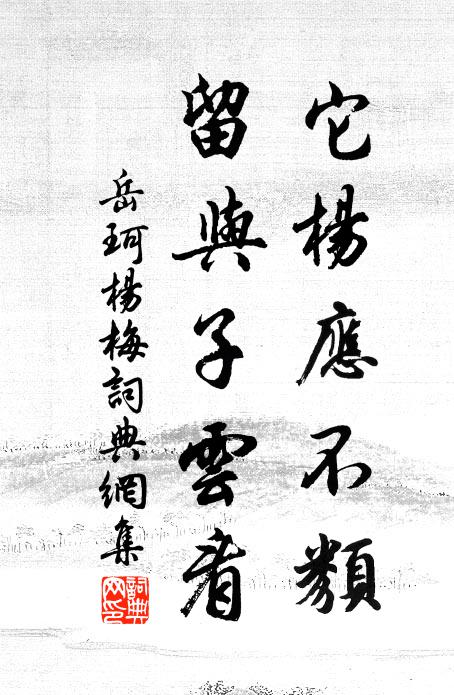 它楊應不類
留與子雲看
岳珂楊梅詞典網集
詞典
网印